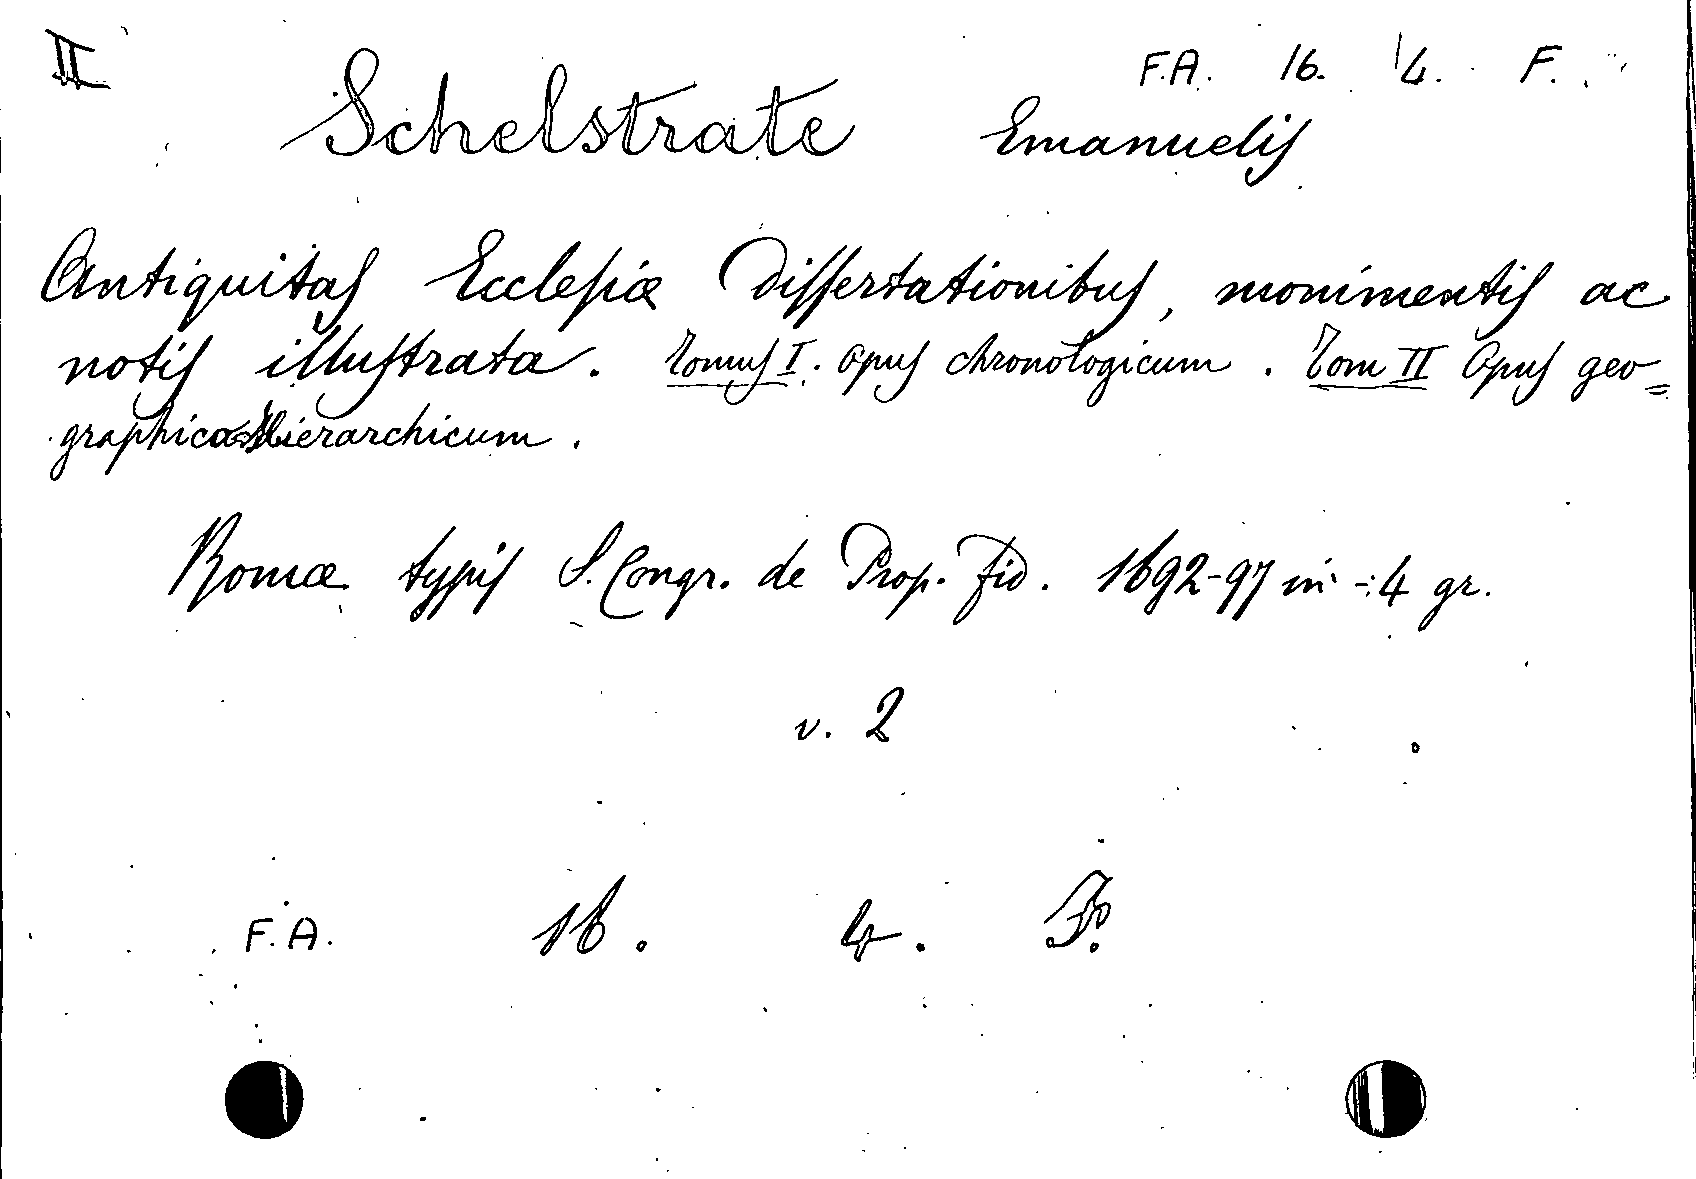 II
F.A. 16. 4. F.
Schelstrate Emanuelis
Antiquitas Ecclesiæ Dissertationibus, monimentis ac
notis illustrata. Tomus I. Opus chronologicum. Tom II Opus geo=
graphico=Hierarchicum.
Romæ typis S. Congr. de Prop. Fid. 1692-97 in-4 gr.
v. 2
F.A. 16. 4. F.